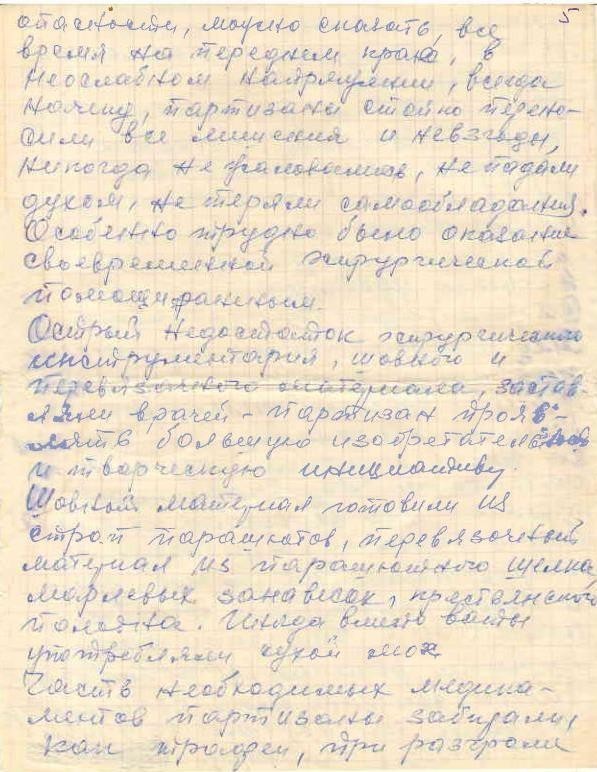 5
опасности, можно сказать, все
время на переднем крае, в
неослабном напряжении, всегда
начику, партизаны стойко перено-
сили все лишения и невзгоды,
никогда не жаловались, не падали
духом, не теряли самообладания.
Особенно трудно было оказание
своевременной хирургической
помощи раненым.
Острый недостаток хирургического
инструментария, шовного и
перевязочного материала, застав-
ляли врачей - партизан прояв-
лять большую изобретательность
и творческую инициативу.
Шовный материал готовили из
строп парашютов, перевязочный
материал из парашютного шелка,
марлевых занавесок, крестьянского
полотна. Иногда вместо ваты
употребляли сухой мох
Часть необходимых медика-
ментов партизаны забирали,
как трофеи, при разгроме